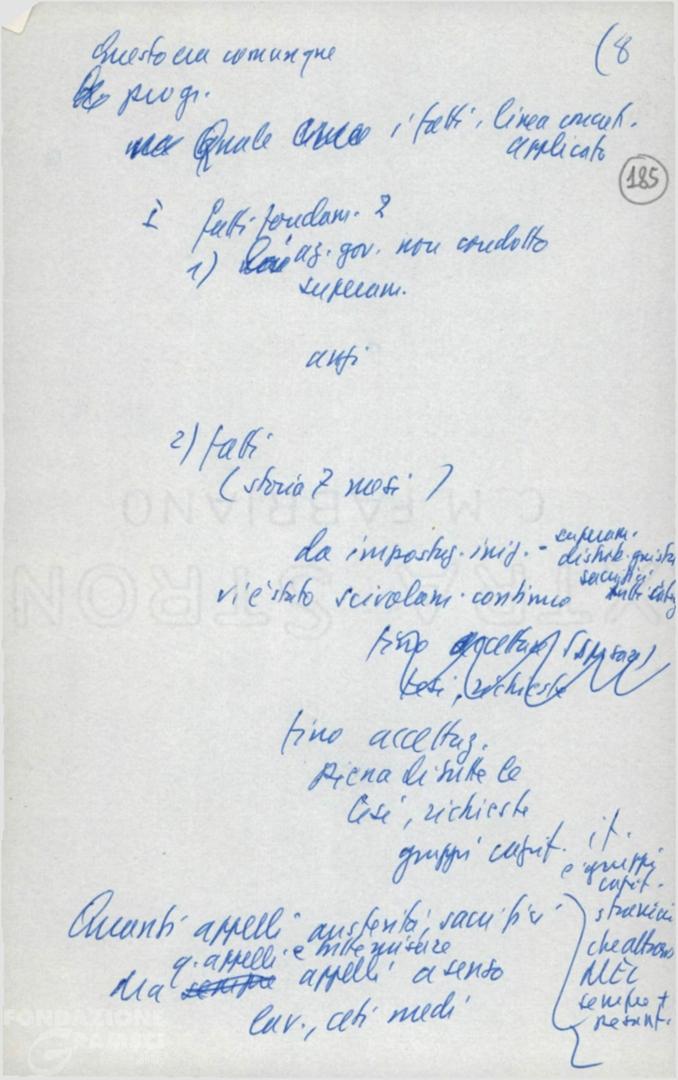 (8
Questo era comunque
progr.
ma Quale i fatti, linea
applicato
185
I fatti fondam. 2
1) az. gov. non condotto
superam.
anzi
2) fatti
(storia 7 mesi)
C.M. FABRIANO
da impostaz. iniz. - superam.
distrib. giusta
sacrifici
tutti
vi è stato scivolam. continuo
EXTRA STRONG
fino accettaz.
tesi, richieste
fino accettaz.
piena di tutte le
tesi, richieste
gruppi capit. it.
e gruppi
capit.
stranieri
che
MEC
sempre +
pesant.
Quanti appelli austerità, sacrifici
q. appelli e misure
Ma sempre appelli a senso
lav., ceti medi
FONDAZIONE
GRAMSCI